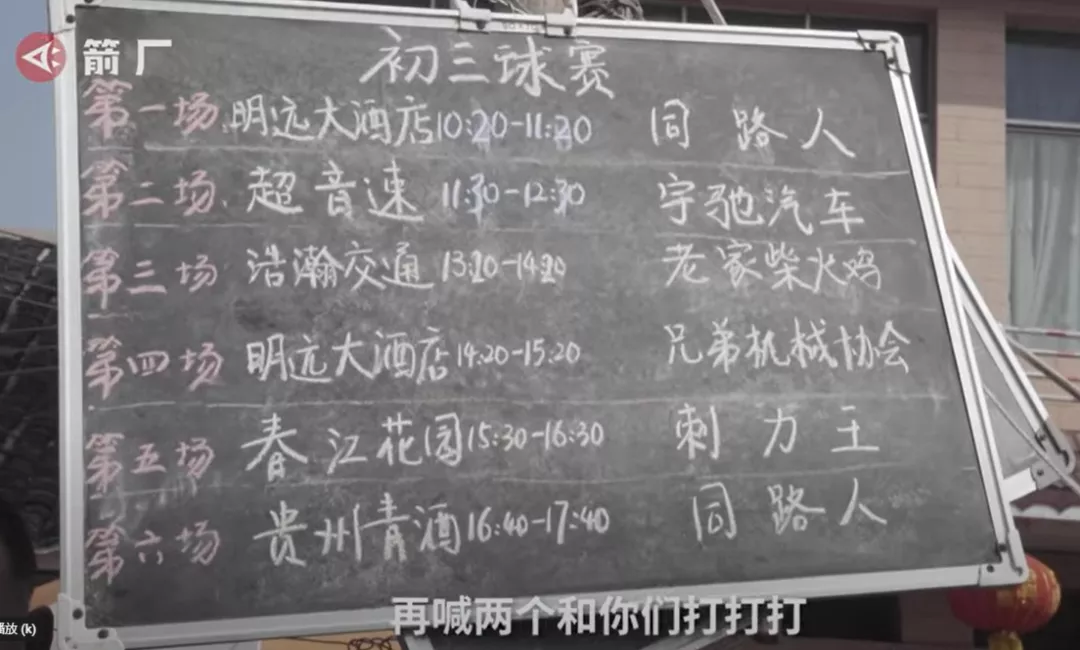 箭厂
初三球赛
第一场 明远大酒店 10:20-11:20 同路人
第二场 超音速 11:30-12:30 宇驰汽车
第三场 浩瀚交通 13:20-14:20 老家柴火鸡
第四场 明远大酒店 14:20-15:20 兄弟机械协会
第五场 春江花园 15:30-16:30 刺力王
第六场 贵州青酒 16:40-17:40 同路人
再喊两个和你们打打打
播放 (k)